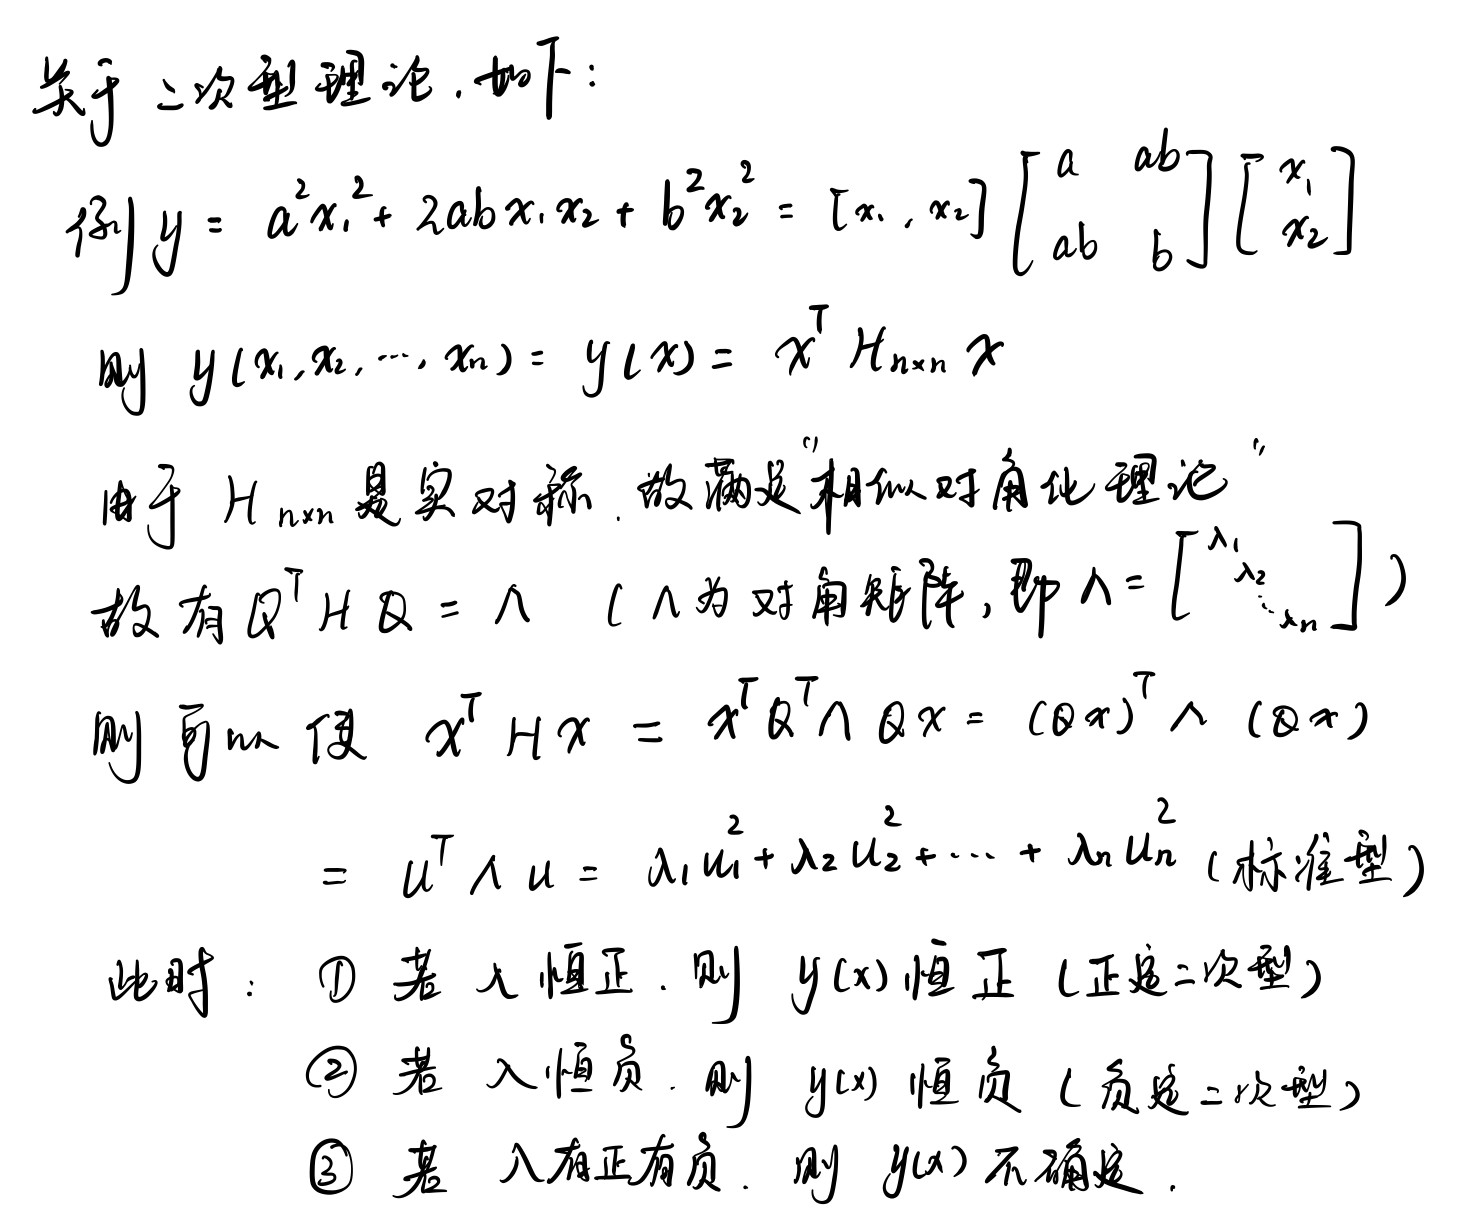 关于二次型理论.如下:
例 y = a²x₁² + 2abx₁x₂ + b²x₂² = [x₁, x₂] [a ab; ab b] [x₁; x₂]
则 y(x₁,x₂,…,xₙ) = y(x) = xᵀ Hₙₓₙ x
由于 Hₙₓₙ 是实对称.故满足"相似对角化理论"
故有 QᵀHQ = Λ (Λ为对角矩阵,即 Λ = [λ₁ λ₂ ⋱ λₙ])
则可以使 xᵀHx = xᵀQᵀΛQx = (Qx)ᵀΛ(Qx)
= uᵀΛu = λ₁u₁² + λ₂u₂² + … + λₙuₙ² (标准型)
此时: ① 若 λ 恒正.则 y(x) 恒正 (正定二次型)
② 若 λ 恒负.则 y(x) 恒负 (负定二次型)
③ 若 λ 有正有负.则 y(x) 不确定.